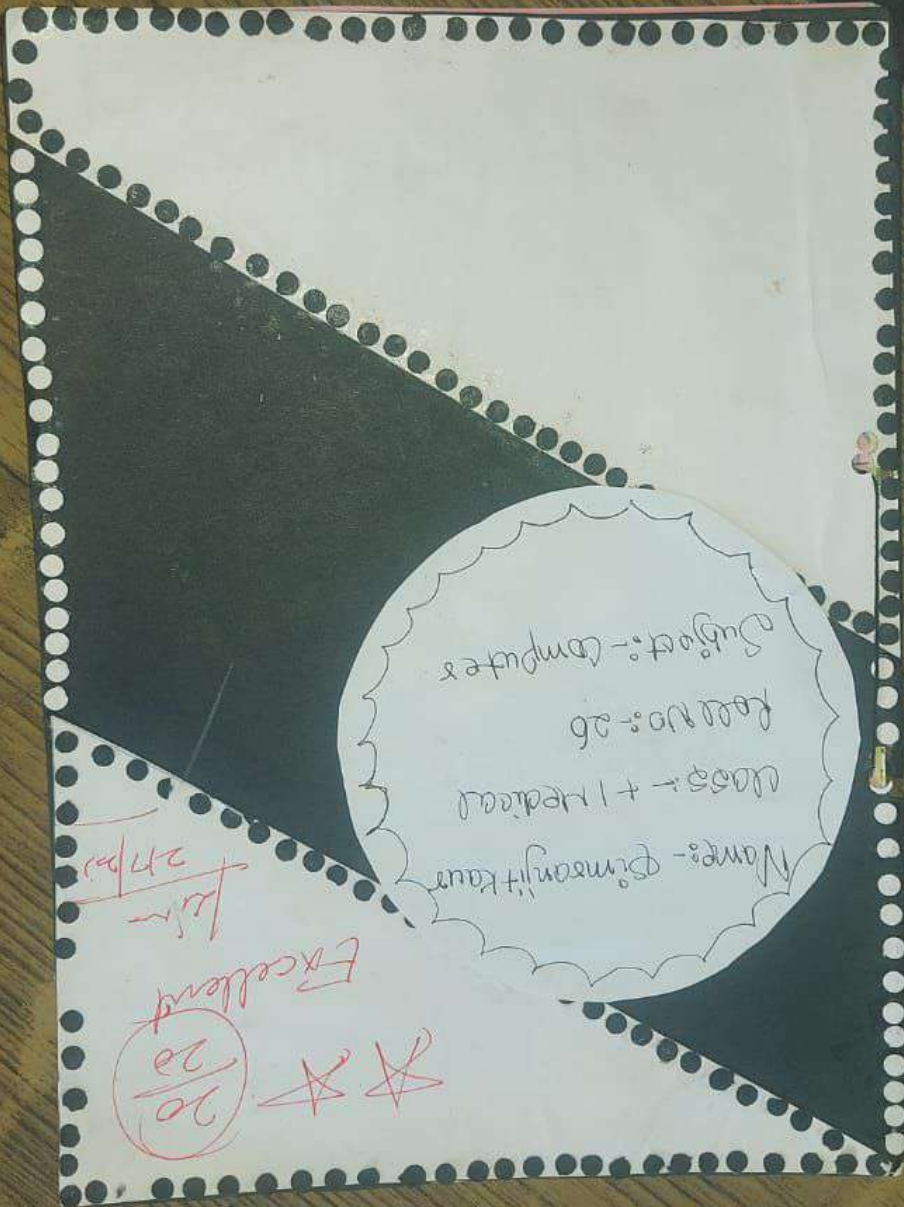 20
20
Excellent
Name:- Simranjit Kaur
Class:- +1 Medical
Roll No:- 26
Subject:- Computer